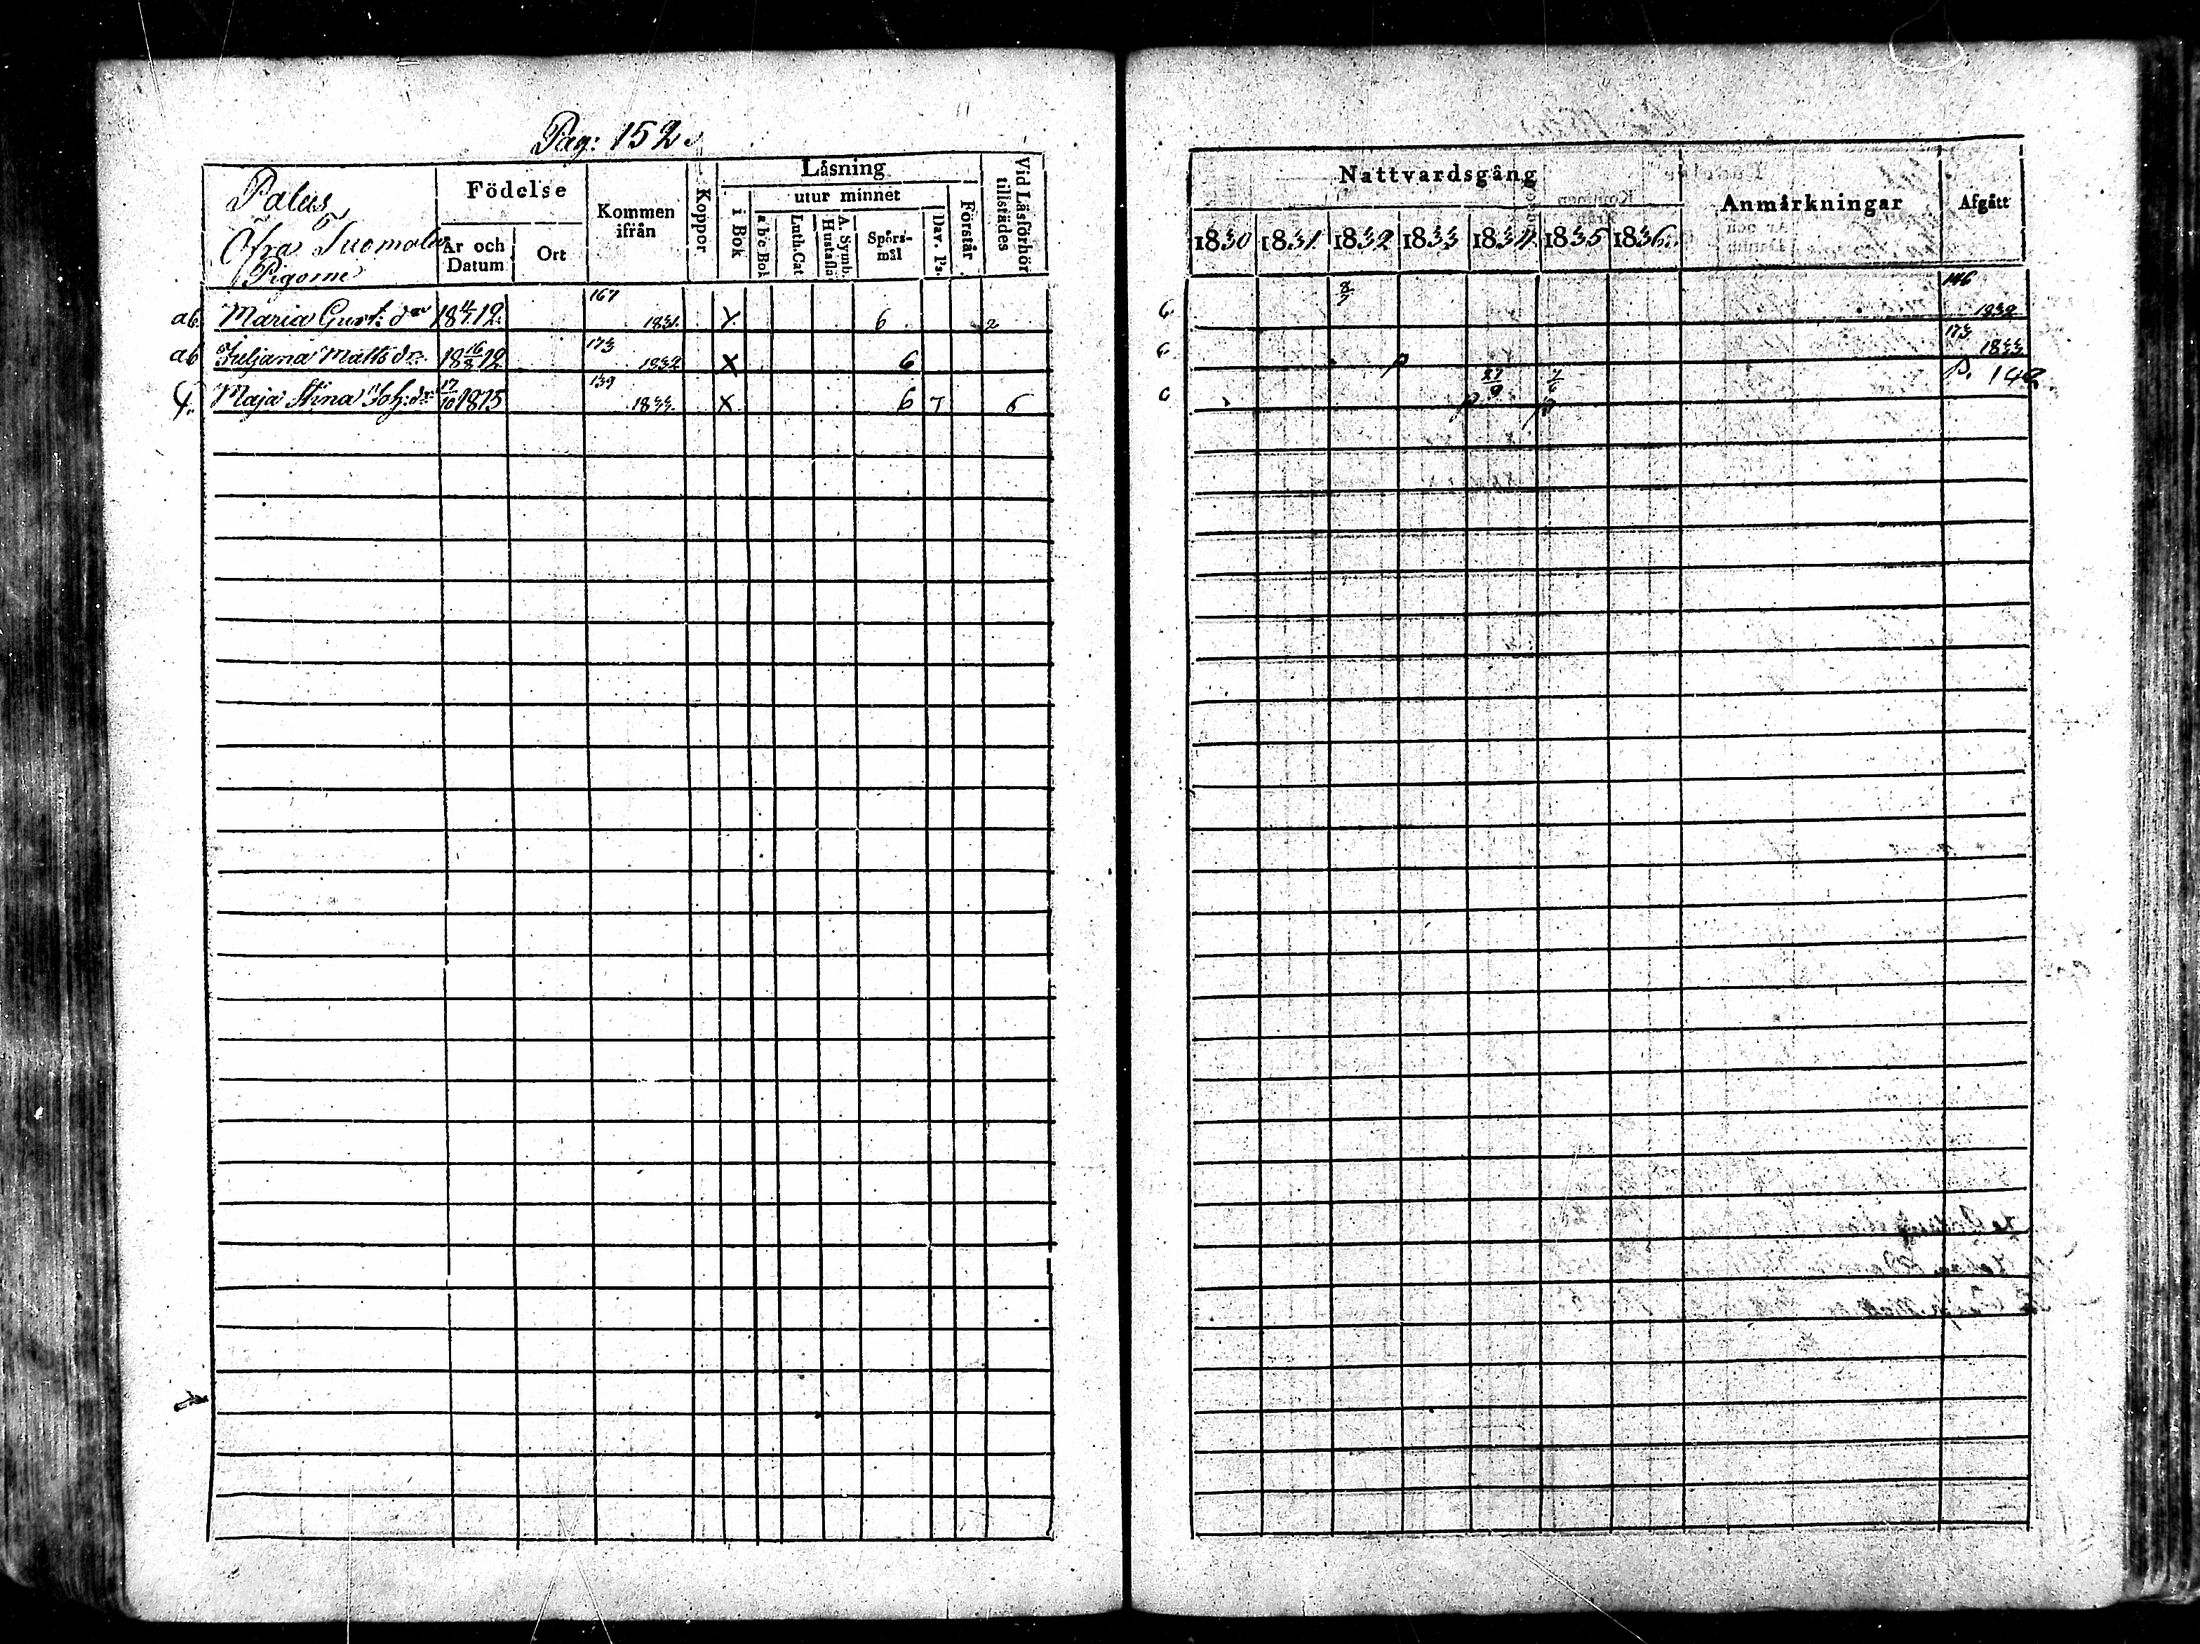 Pag: 152.
Palus
Öfra Tuomola
Pigorne
Födelse
År och Datum
Ort
Kommen ifrån
Koppor
Låsning
i Bok
utur minnet
a b c Bok
Luth. Cat.
A. Symb. Hustafla
Spörs-mål
Dav. Ps.
Förstår
Vid Läsförhör tillstädes
Nattvardsgång
1830 1831 1832 1833 1834 1835 1836
Anmärkningar
Afgått
ab Maria Gust: dr 18 4/7 12. 167 1831. 6 2 6 8/7 146 1832
ab Juljana Matts dr: 18 16/2 12 173 1832 X 6 6 173 1833
Maja Stina Joh: dr 17/10 1815 139 1833. X 6 6 27/9 7/6 p. 142